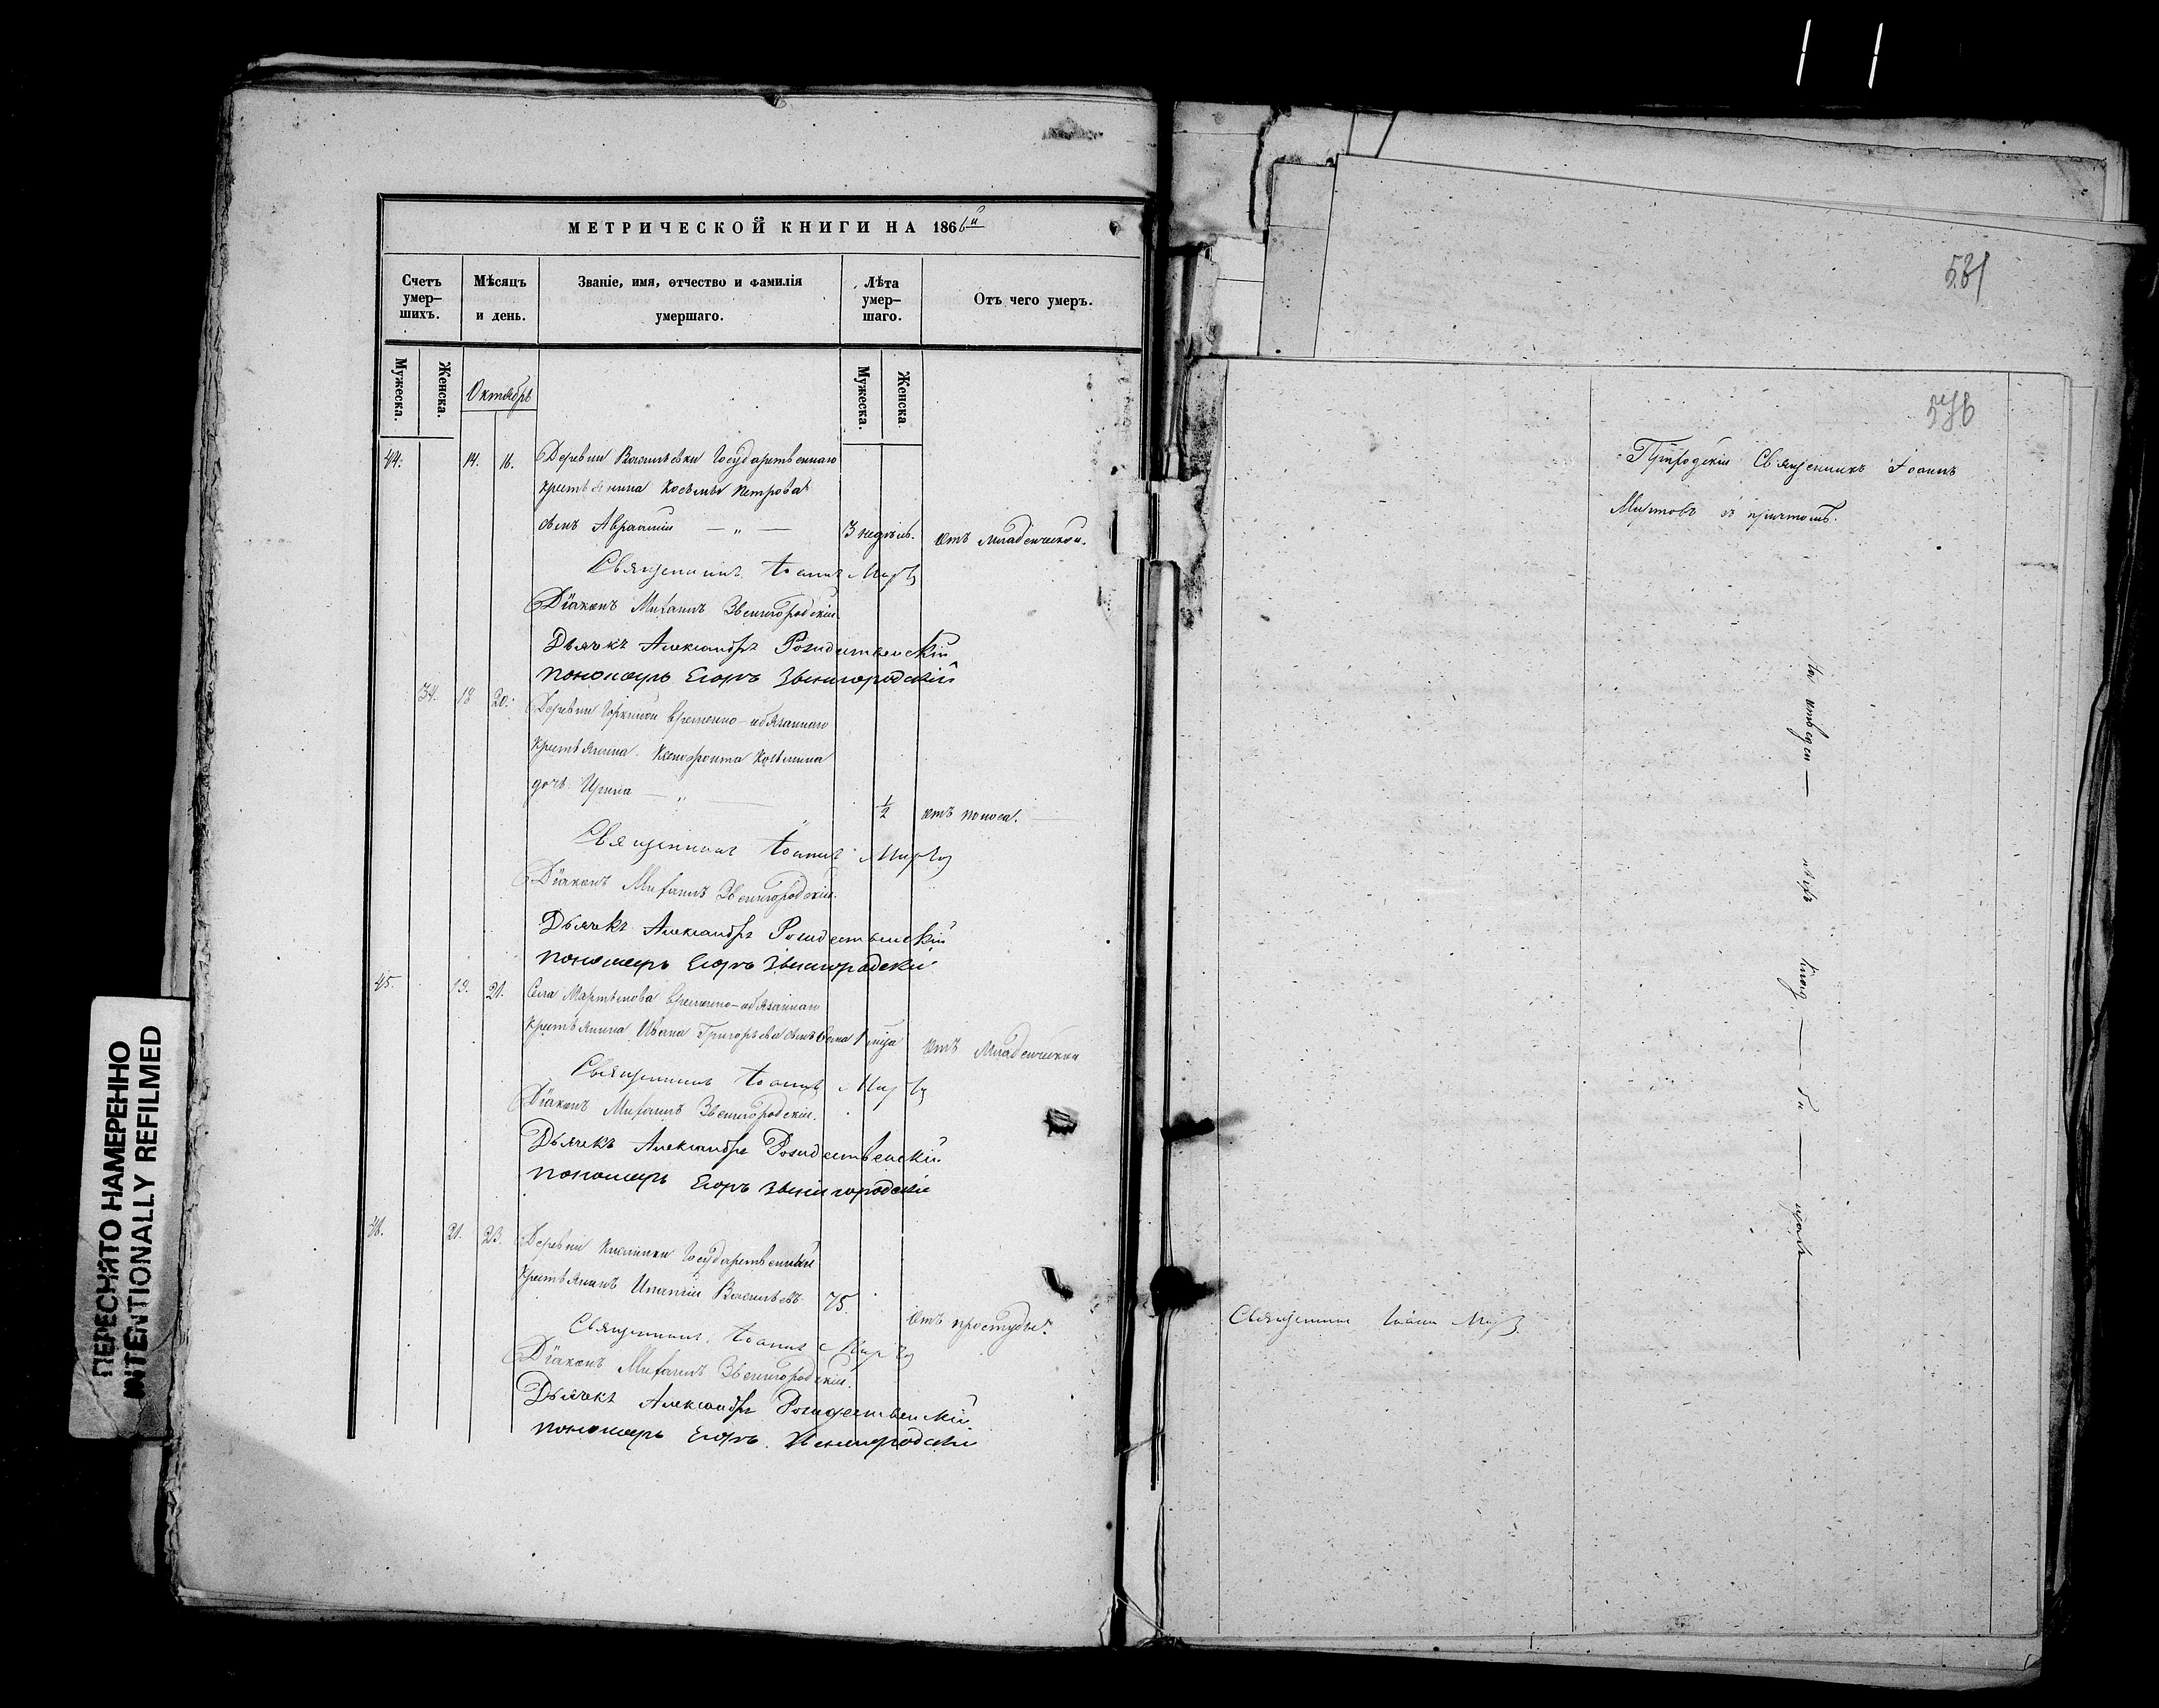 МЕТРИЧЕСКОЙ КНИГИ НА 1866й
Счетъ умер-шихъ.
Мѣсяцъ и день.
Званіе, имя, отчество и фамилія умершаго.
Лѣта умер-шаго.
Отъ чего умеръ.
Мужеска.
Женска.
Октябрь
Мужеска.
Женска.
44. 14. 16. Деревни Васильевки Государственнаго
крестьянина Косьмы Петрова
сынъ Авраамій — „ — 3 недѣль. отъ младенческой.
Священникъ Іоаннъ Миртовъ
Діаконъ Михаилъ Звенигородскій
Дьячекъ Александръ Рождественскій
Пономарь Егоръ Звенигородскій
34. 18 20. Деревни временно-обязаннаго
крестьянина Ксенофонта Косьмина
дочь Ирина — „ — 1/2 отъ поноса.
Священникъ Іоаннъ Миртовъ
Діаконъ Михаилъ Звенигородскій.
Дьячекъ Александръ Рождественскій
Пономарь Егоръ Звенигородскій
45. 19. 21. Села временно-обязаннаго
крестьянина Ивана Григорьева сынъ 1 отъ младенческой
Священникъ Іоаннъ Миртовъ
Діаконъ Михаилъ Звенигородскій.
Дьячекъ Александръ Рождественскій
Пономарь Егоръ Звенигородскій
46. 21. 23. Деревни Государственный
крестьянинъ Ипатій Васильевъ 75. отъ простуды.
Священникъ Іоаннъ Миртовъ
Діаконъ Михаилъ Звенигородскій.
Дьячекъ Александръ Рождественскій
Пономарь Егоръ Звенигородскій
ПЕРЕСНЯТО НАМЕРЕННО
INTENTIONALLY REFILMED
Священникъ Іоаннъ
Миртовъ съ причтомъ.
Священникъ Іоаннъ Миртовъ